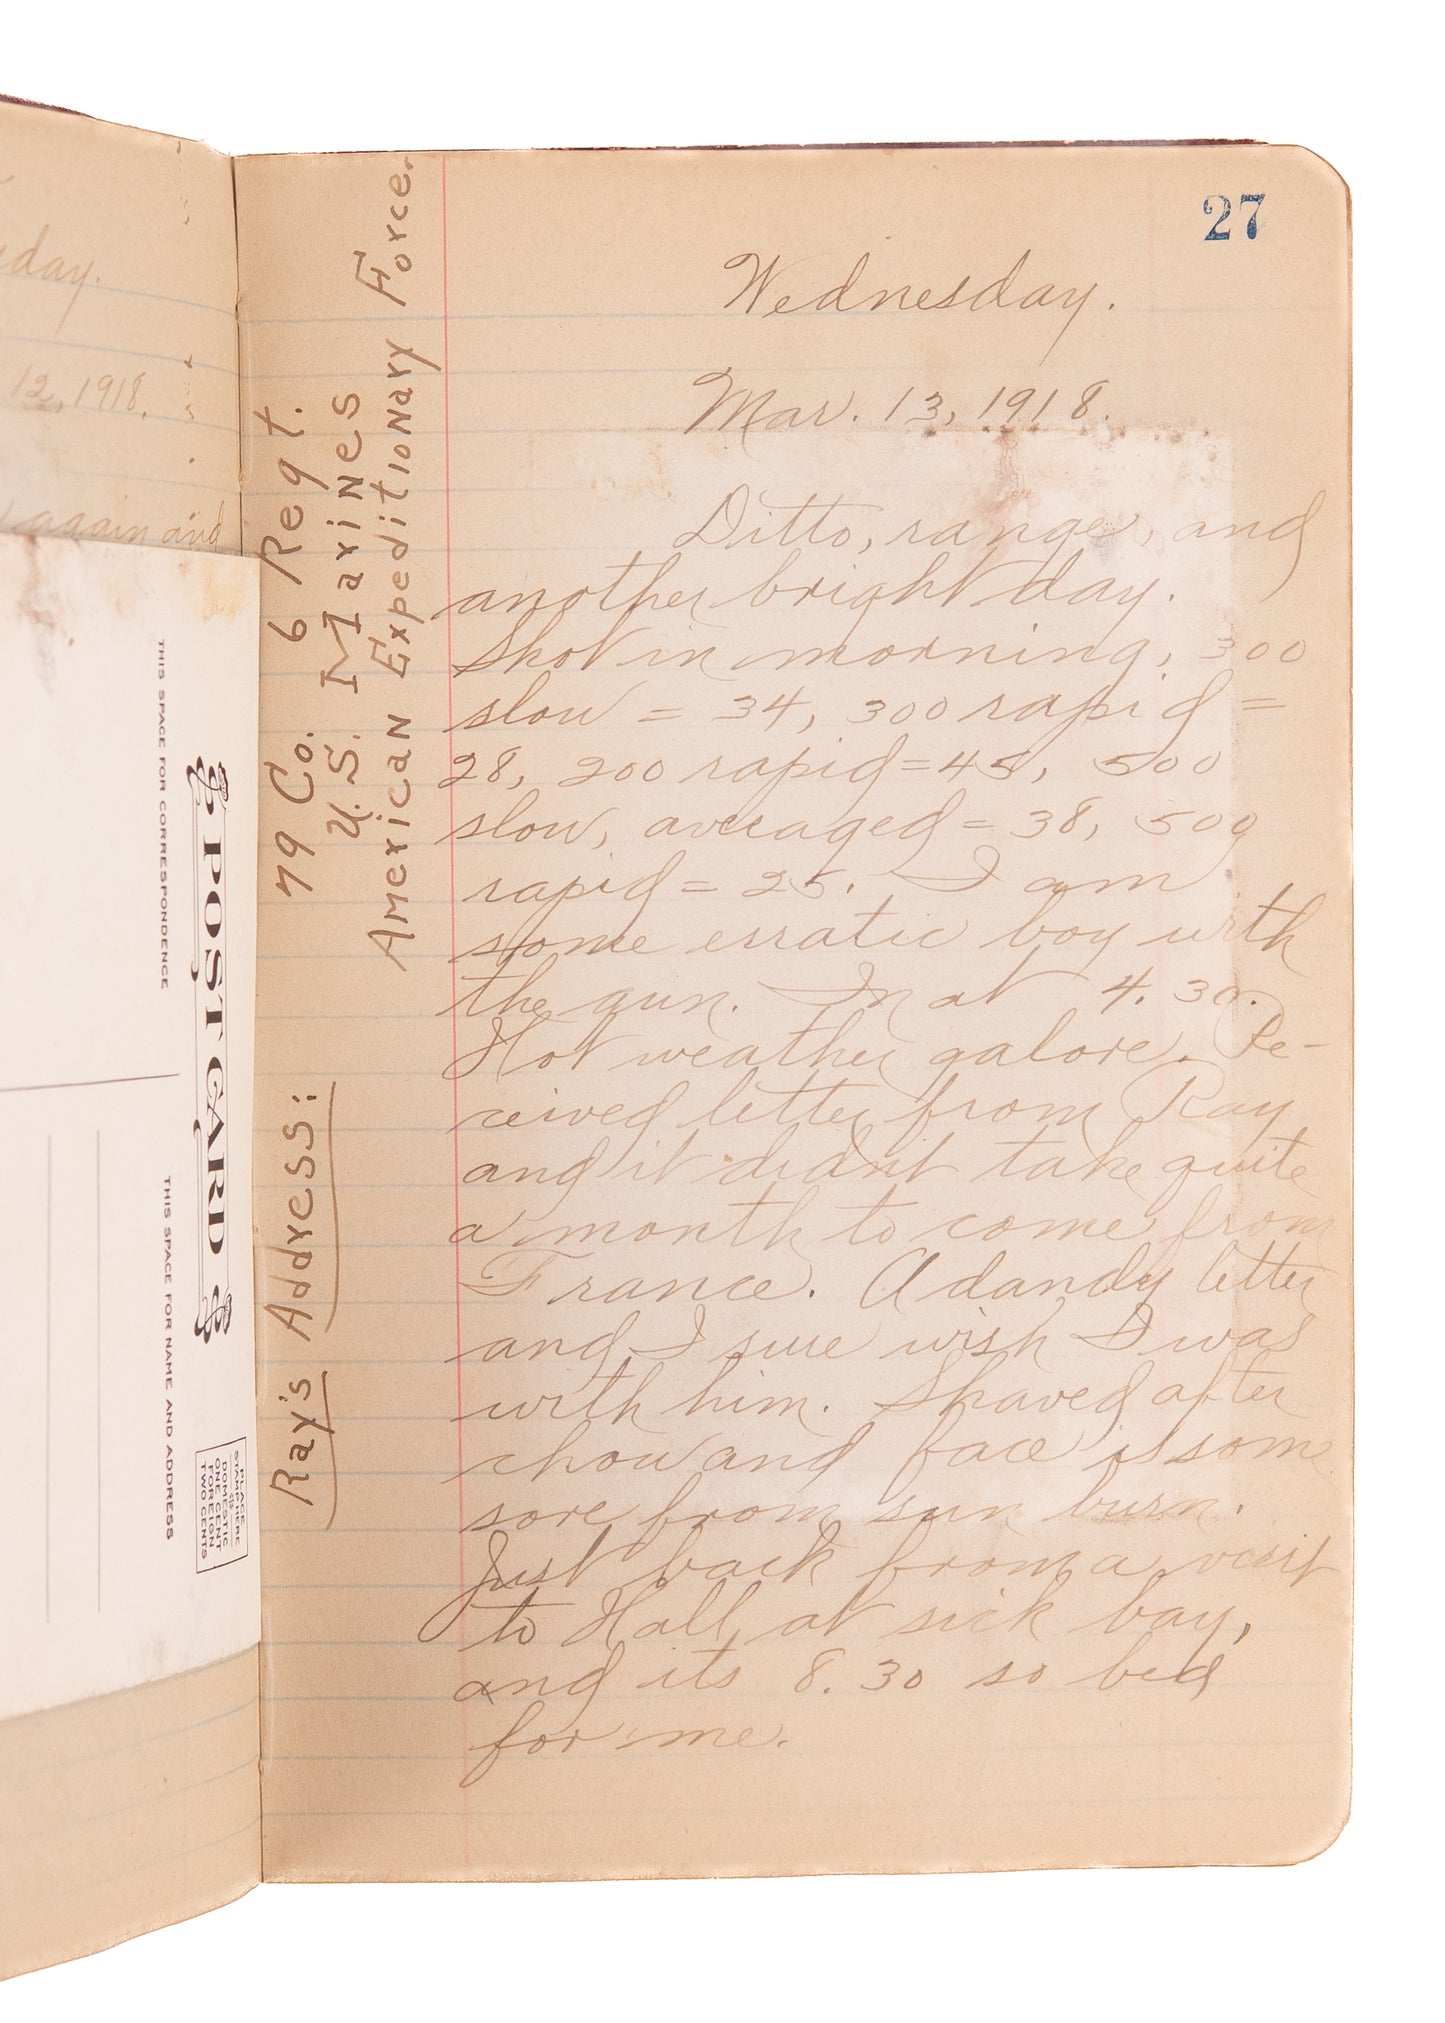 day.
12, 1918.
again and
POST CARD
THIS SPACE FOR CORRESPONDENCE
THIS SPACE FOR NAME AND ADDRESS
PLACE
STAMP HERE
DOMESTIC
ONE CENT
FOREIGN
TWO CENTS
Ray's Address:
79 Co. 6 Regt.
U.S. Marines
American Expeditionary Force.
27
Wednesday.
Mar. 13, 1918.
Ditto, range, and
another bright day.
Shot in morning, 300
slow = 34, 300 rapid =
28, 200 rapid = 45, 500
slow, averaged = 38, 500
rapid = 25. I am
some erratic boy with
the gun. In at 4.30.
Hot weather galore. Re-
ceived letter from Ray
and it didn't take quite
a month to come from
France. A dandy letter
and I sure wish I was
with him. Shaved after
chow and face is some
sore from sun burn.
Just back from a visit
to Hall at sick bay,
and its 8.30 so bed
for me.